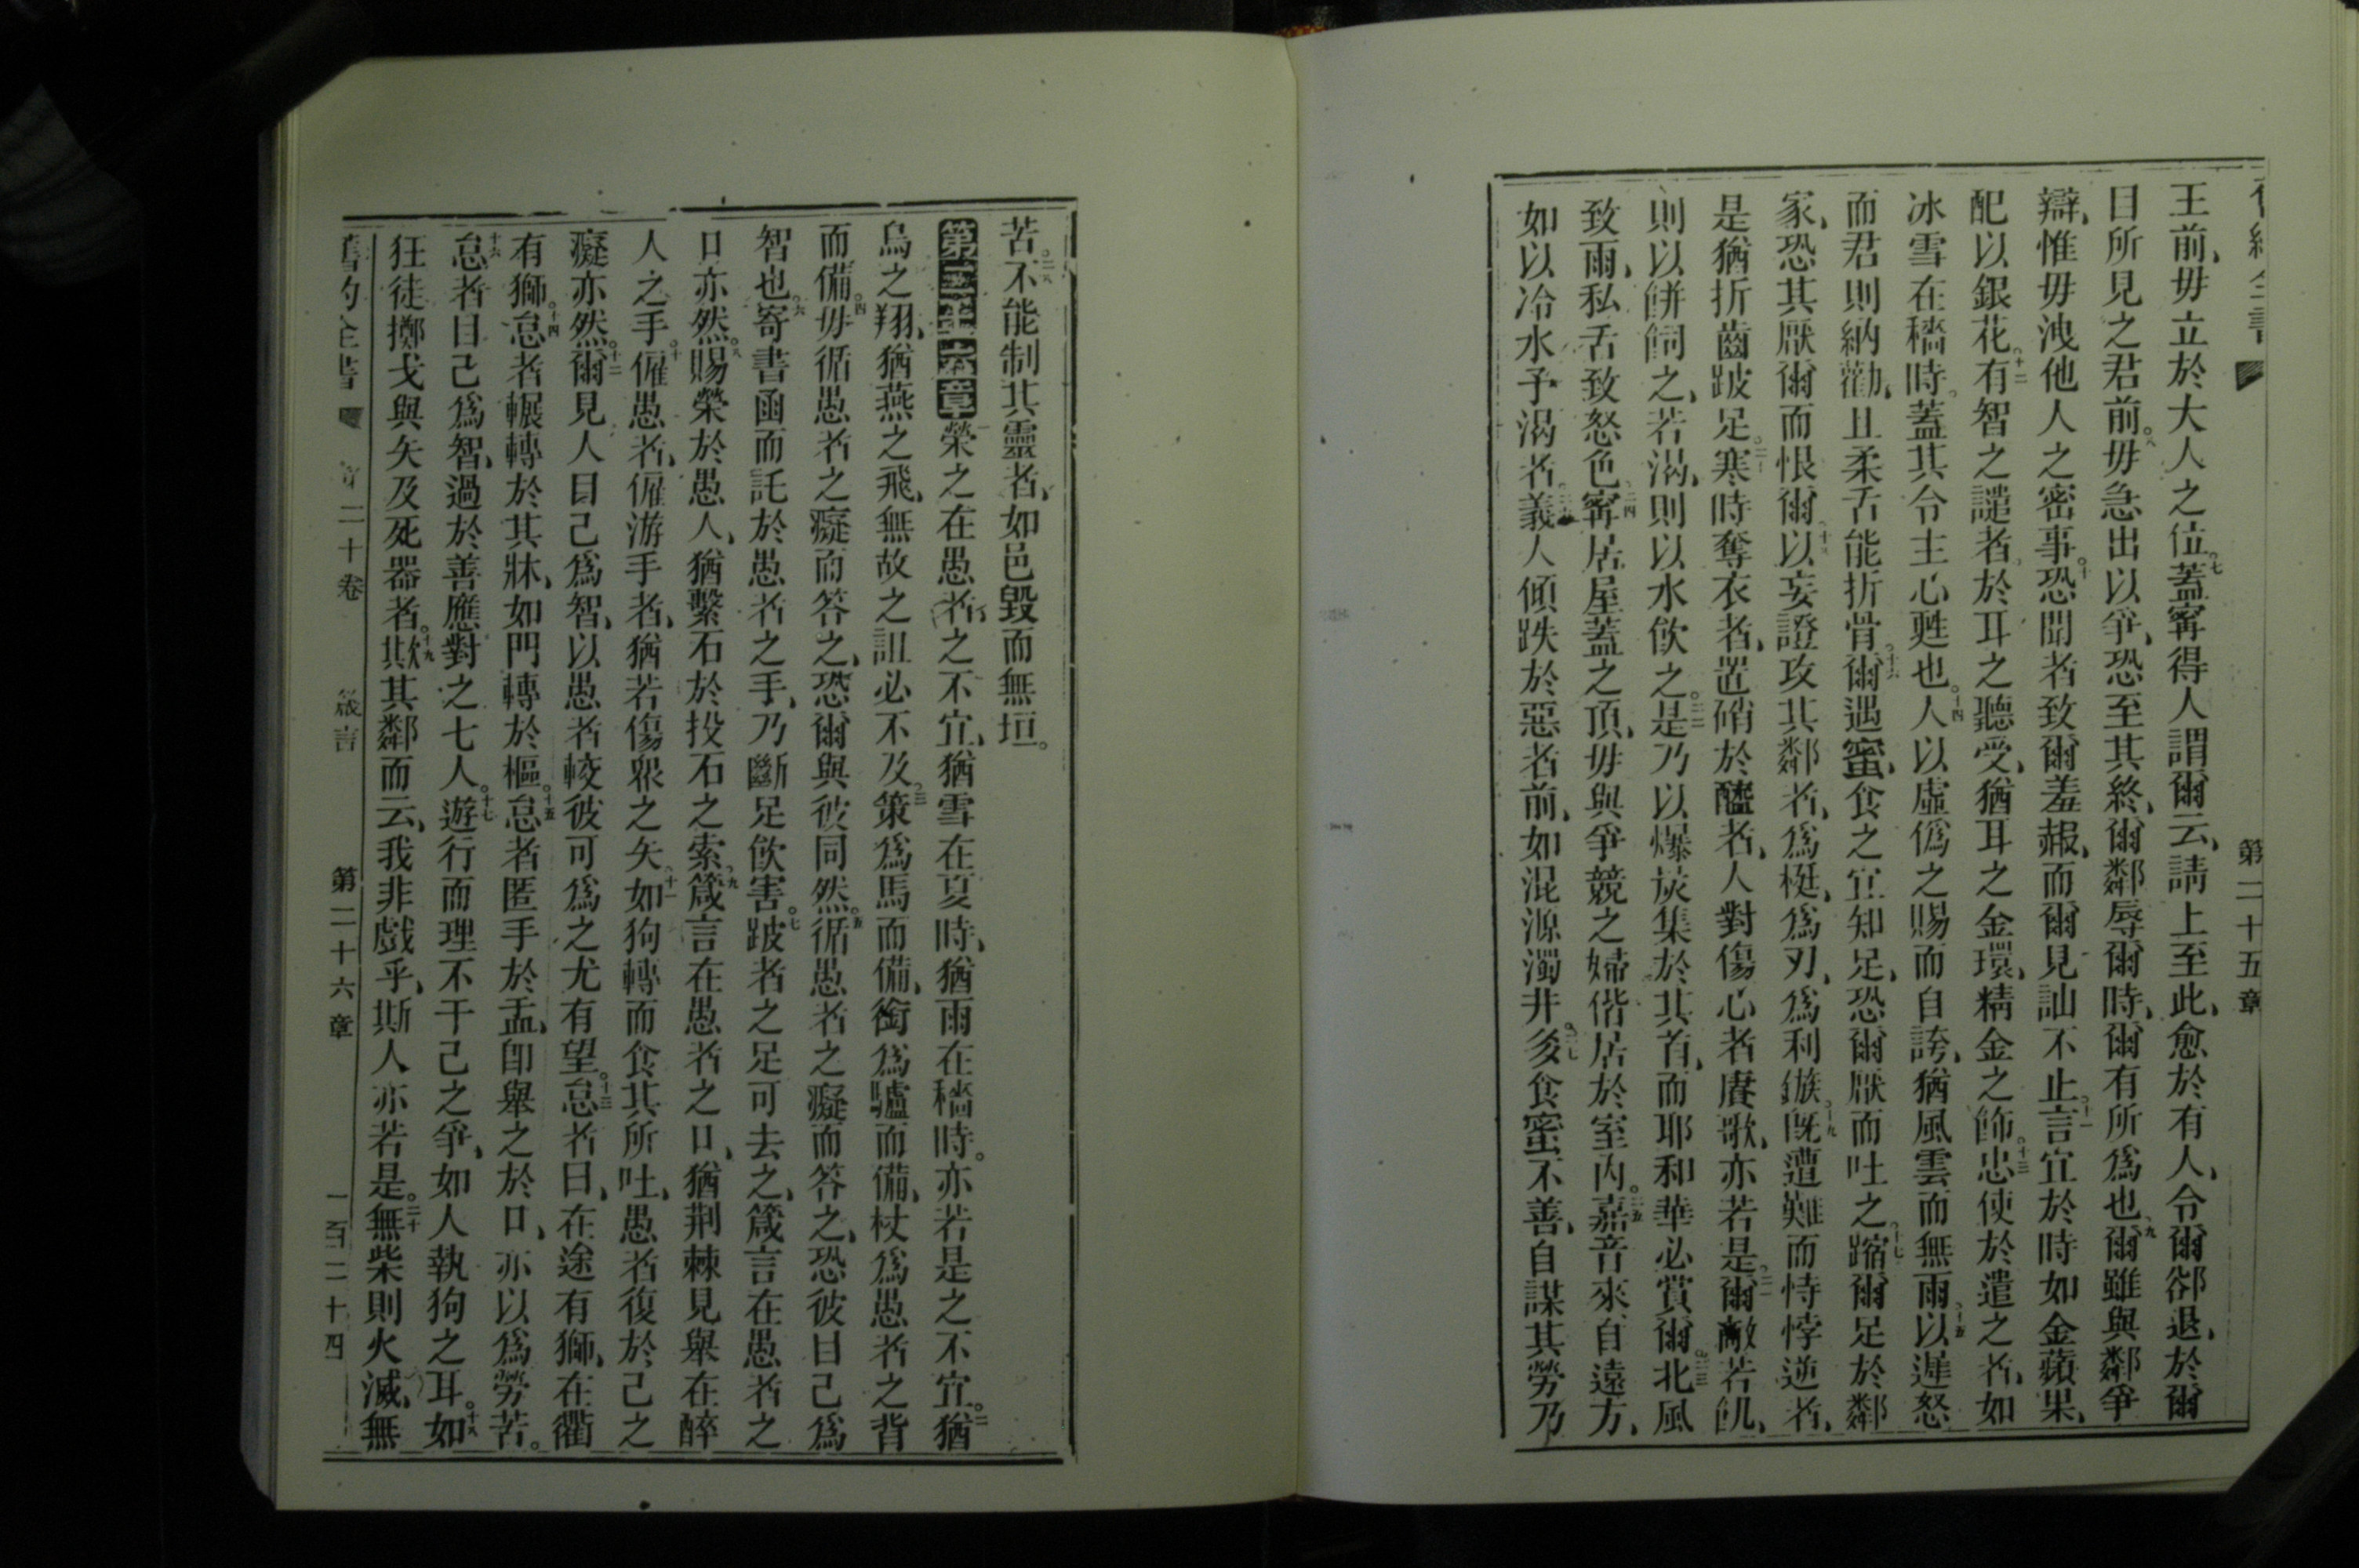 第二十五章
王前、毋立於大人之位。七蓋寧得人謂爾云、請上至此、愈於有人、令爾卻退、於爾
目所見之君前。八毋急出以爭、恐至其終、爾鄰辱爾時、爾有所爲也。九爾雖與鄰爭
辯、惟毋洩他人之密事。十恐聞者致爾羞赧、而爾見訕不止。十一言宜於時如金蘋果、
配以銀花。十二有智之譴者、於耳之聽受、猶耳之金環、精金之飾。十三忠使於遣之者、如
冰雪在穡時。蓋其令主心甦也。十四人以虛僞之賜而自誇、猶風雲而無雨。十五以遲怒
而君則納勸、且柔舌能折骨。十六爾遇蜜、食之宜知足、恐爾厭而吐之。十七蹜爾足於鄰
家、恐其厭爾而恨爾。十八以妄證攻其鄰者、爲梃、爲刃、爲利鏃。十九旣遭難而恃悖逆者、
是猶折齒跛足。二十寒時奪衣者、置硝於醯者、人對傷心者賡歌、亦若是。二一爾敵若飢、
則以餅飼之、若渴、則以水飲之。二二是乃以爆炭集於其首、而耶和華必賞爾。二三北風
致雨、私舌致怒色。二四寧居屋蓋之頂、毋與爭競之婦偕居於室內。二五嘉音來自遠方、
如以冷水予渴者。二六義人傾跌於惡者前、如混源濁井。二七多食蜜不善、自謀其勞乃
苦。二八不能制其靈者、如邑毀而無垣。
第二十六章 一榮之在愚者之不宜、猶雪在夏時、猶雨在穡時。亦若是之不宜。二猶
鳥之翔、猶燕之飛、無故之詛必不及。三策爲馬而備、銜爲驢而備、杖爲愚者之背
而備。四毋循愚者之癡而答之、恐爾與彼同然。五循愚者之癡而答之、恐彼目己爲
智也。六寄書函而託於愚者之手、乃斷足飲害。七跛者之足可去之、箴言在愚者之
口亦然。八賜榮於愚人、猶繫石於投石之索。九箴言在愚者之口、猶荆棘見舉在醉
人之手。十僱愚者、僱游手者、猶若傷衆之矢。十一如狗轉而食其所吐、愚者復於己之
癡亦然。十二爾見人目己爲智、以愚者較彼可爲之尤有望。十三怠者曰、在途有獅、在衢
有獅。十四怠者輾轉於其牀、如門轉於樞。十五怠者匿手於盂、卽舉之於口、亦以爲勞苦。
十六怠者目己爲智、過於善應對之七人。十七遊行而理不干己之爭、如人執狗之耳。十八如
狂徒擲戈與矢及死器者。十九欺其鄰而云、我非戲乎、斯人亦若是。二十無柴則火滅、無
舊約全書 第二十卷 箴言 第二十六章 一百二十四